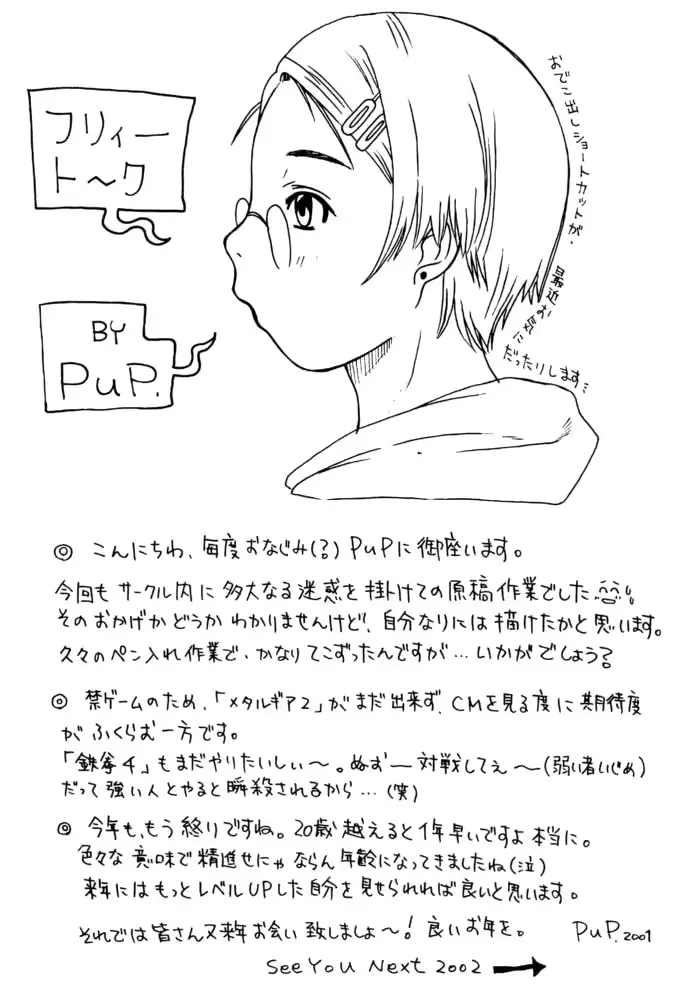 フリィー
ト〜ク
BY
PuP.
おでこ出しショートカットが、
最近お気に
だったりします…
◎ こんにちわ、毎度おなじみ(?) PuPに御座います。
今回も サークル内に 多大なる迷惑を 掛けての原稿作業でした
そのおかげか どうか わかりませんけど、自分なりには 描けたかと 思います。
久々のペン入れ作業で、かなり てこずったんですが… いかがでしょう?
◎ 禁ゲームのため、「メタルギア2」が まだ出来ず、CMを見る度に 期待度
が ふくらむ 一方です。
「鉄拳4」もまだやりたいしぃ〜。ぬおー対戦してぇ〜(弱い者いじめ)
だって 強い人とやると 瞬殺されるから…(笑)
◎ 今年も、もう 終りですね。20歳 越えると 1年早いですよ 本当に。
色々な 意味で 精進せにゃ ならん 年齢になってきましたね(泣)
来年には もっと レベルUPした 自分を 見せられれば 良いと 思います。
それでは 皆さん 又来年 お会い 致しましょ〜! 良い お年を。 PuP. 2001
See You Next 2002